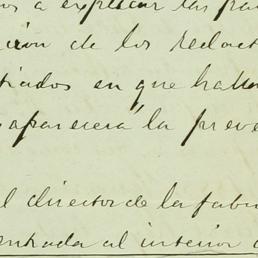 a explicar las
ción de los redact
tirados en que halla
aparecerá la preve
l director de la fabri
entrada al interior d